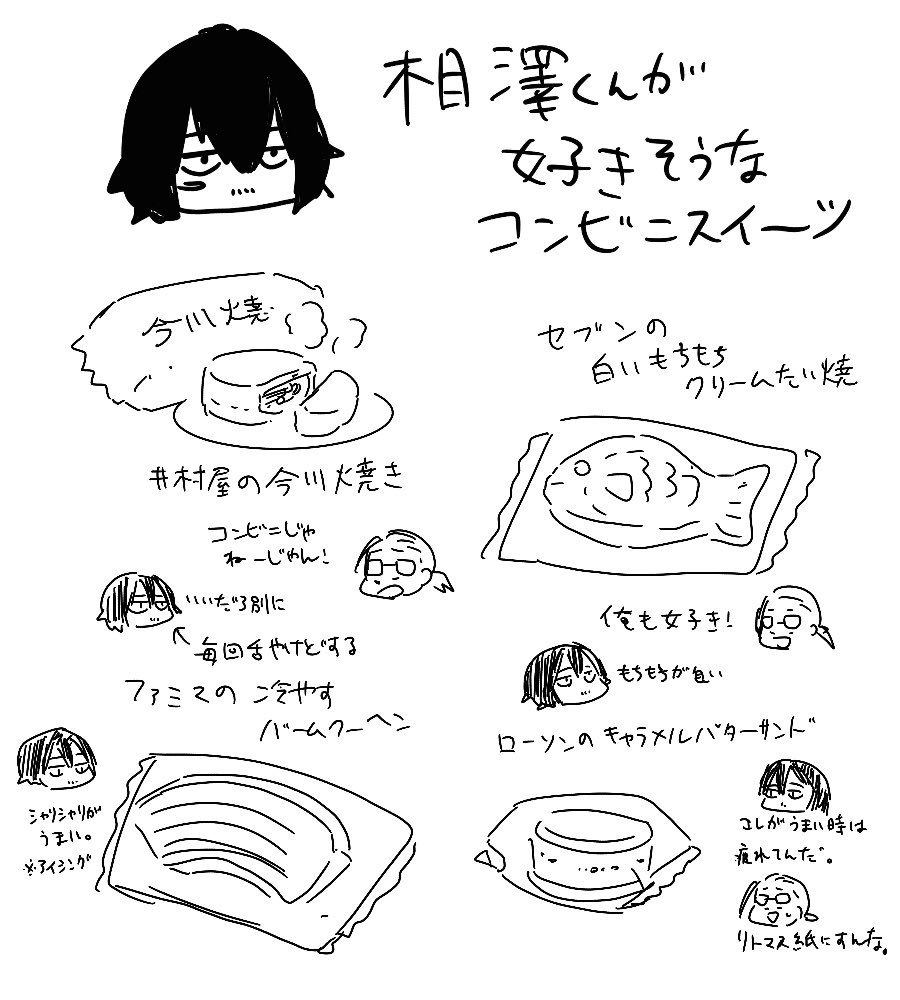 相澤くんが
好きそうな
コンビニスイーツ
今川焼
井村屋の今川焼き
コンビニじゃ
ねーじゃん!
いいだろ別に
毎回舌やけどする
セブンの
白いもちもち
クリームたい焼
俺も好き!
もちもちが良い
ファミマの冷やす
バームクーヘン
シャリシャリが
うまい。
※アイシング
ローソンのキャラメルバターサンド
コレがうまい時は
疲れてんだ。
リトマス紙にすんな。